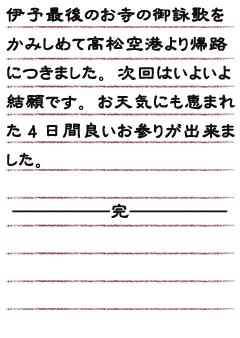 伊予最後のお寺の御詠歌を
かみしめて高松空港より帰路
につきました。次回はいよいよ
結願です。お天気にも恵まれ
た4日間良いお参りが出来ま
した。
完